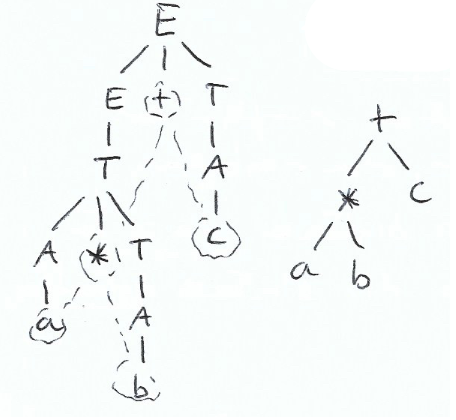 E
E + T
+
T A
*
C
C
A * T
a b
a A
b